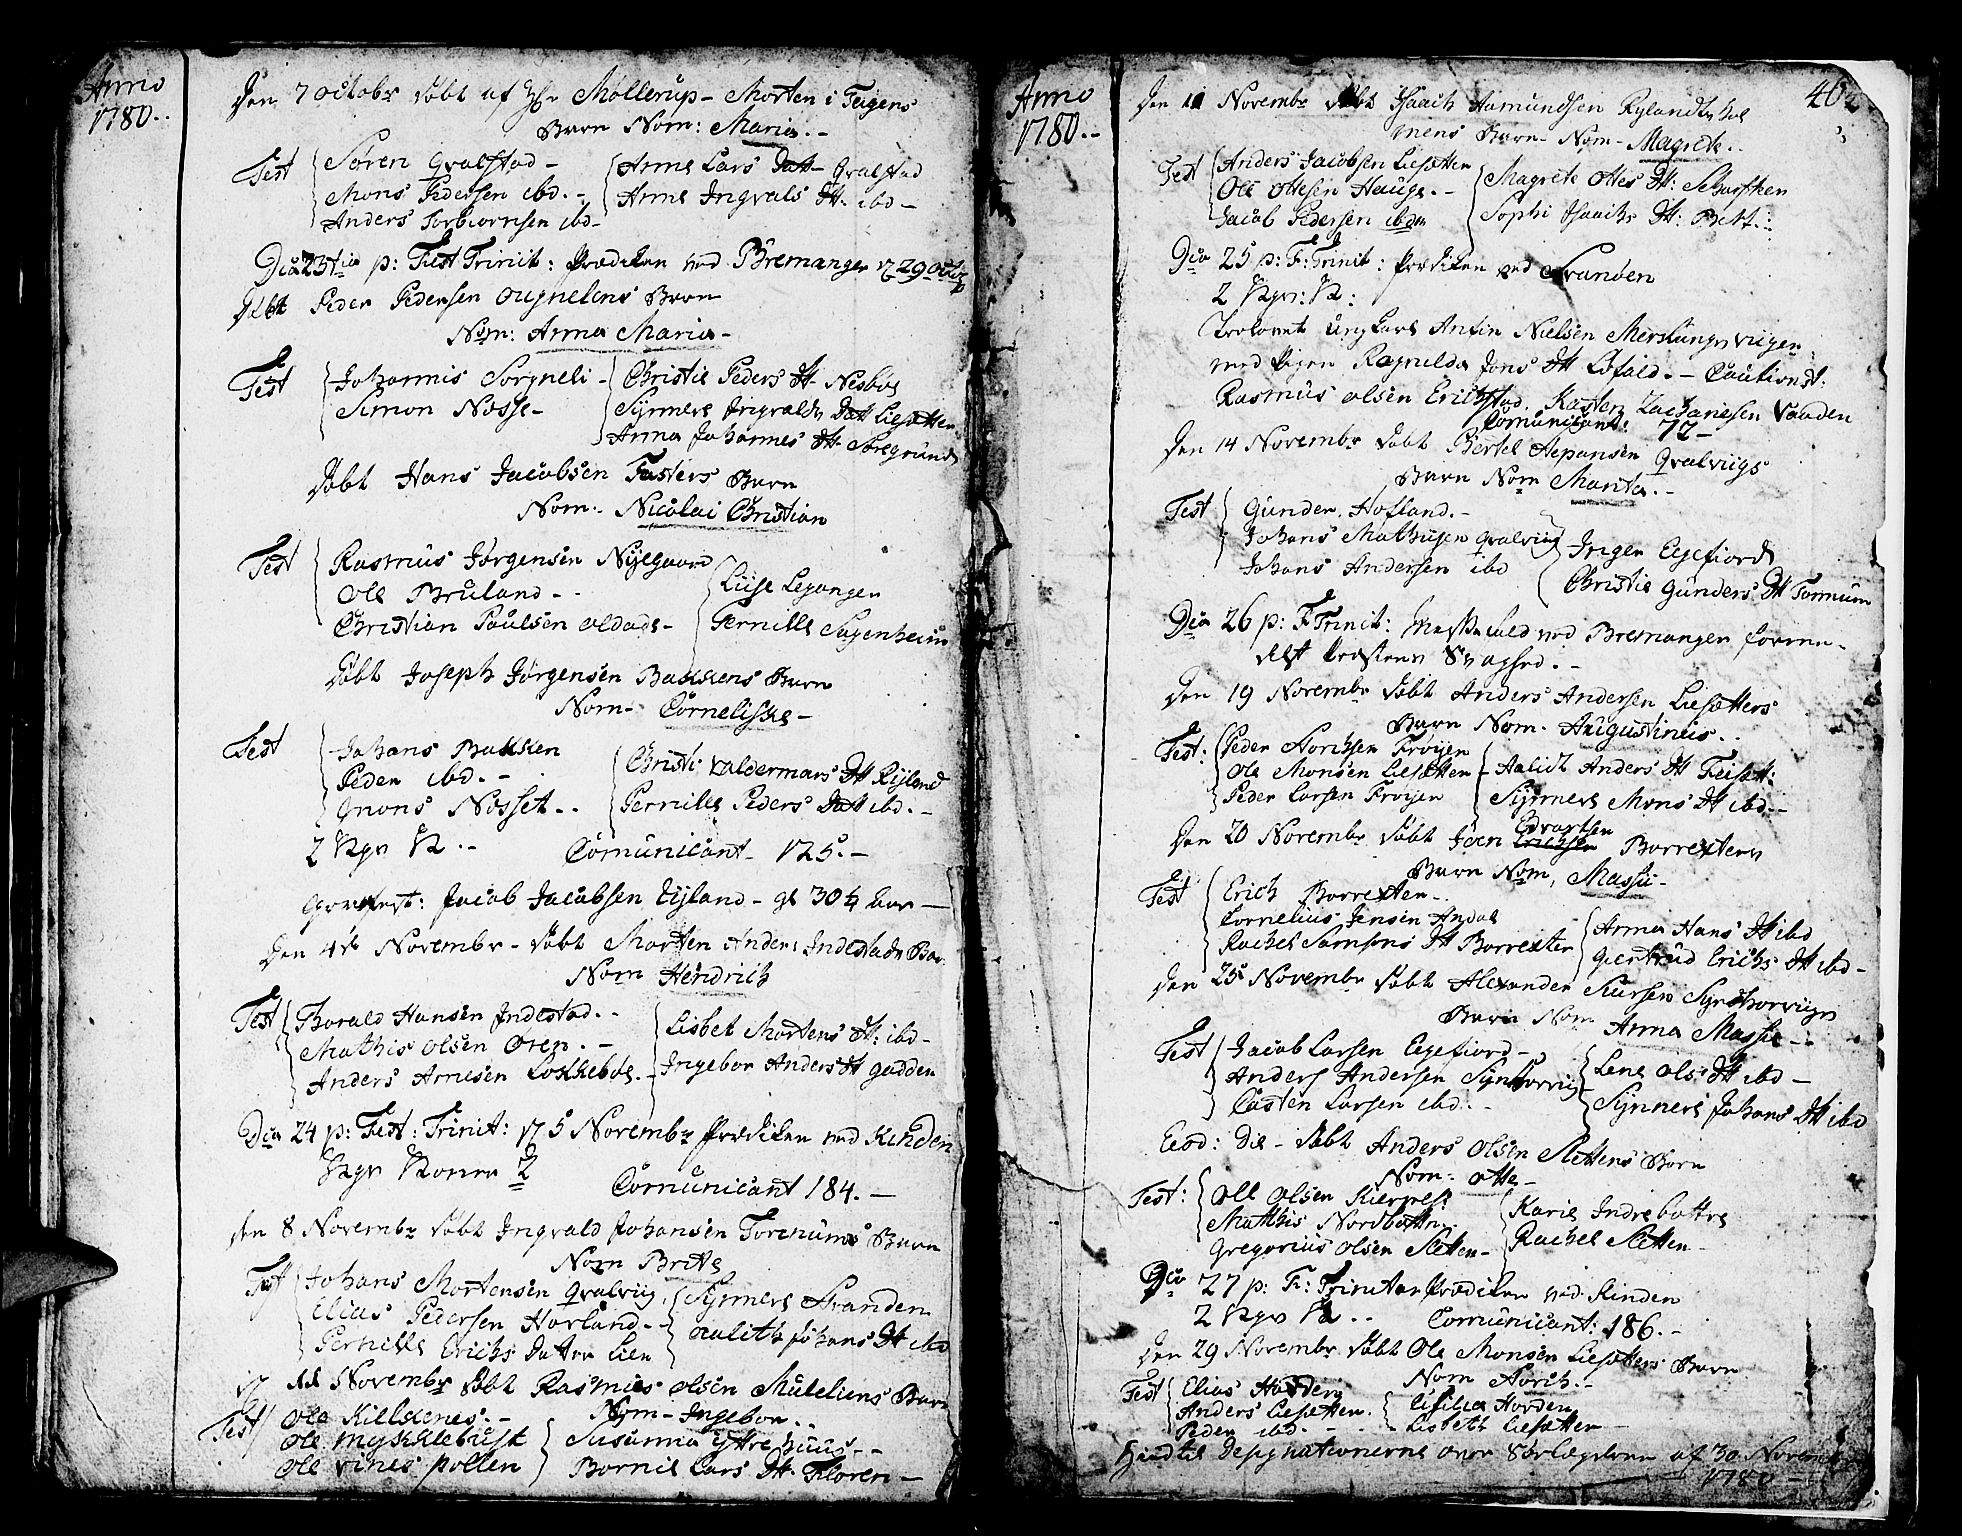 Anno
1780..
Den 7 Octobr døbt af Hr Møllerup - Morten i Teigens
Barn Nom: Maria.-
Test Søren Qvalstad -
Mons Pedersen ibd.-
Anders Torbiørnsen ibd-
Anne Lars Datt- Qvalstad
Anne Ingvals Dtt. ibd-
Dca 23tia p: Fest Trinit: Prædiken ved Bremanger 29 Octbr
Døbt Peder Pedersen Ougnelens Barn
Nom: Anna Maria-
Test Johannis Sorgneli -
Simon Nosse-
Christie Peders Dtt- Nesbøe
Synneve Ingvalds Datt Liesetten
Anna Johannes Dtt. Søregrund
Døbt Hans Jacobsen Fasters Barn
Nom:- Nicolai Christian
Test Rasmus Jørgensen Nyegaard
Ole Bruland - -
Christian Poulsen Aldads-
Liise Legangen
Pernille Sagenheim
Døbt Joseph Jørgensen Bakkens Barn
Nom- Corneliske-
Test Johans Bakken
Peder ibd.-
Mons Nosset..
Christi Valdermars Dtt Ryland
Pernille Peders Datt ibd.-
2 Comunicant- 125.-
Jacob Jacobsen Ryland- gl 30 1/2 Aar-
Den 4de Novembr- døbt Morten Anders Indestads Bar.
Nom Hendrich
Test Harald Hansen Indestad.-
Mathis Olsen Oren.-
Anders Arnesen Løkkeboe.-
Lisbet Mortens Dtt: ibd-
Ingebor Anders Dtt Gadden
Dca 24 p: Fest: Trinit: 5 Novembr Prædiken ved Kinden
2 Comunicant 184.-
Den 8 Novembr døbt Ingvald Johansen Tormums Barn
Nom Brite
Test Johans Mortensen Qvalviig.
Elias Pedersen Hovland.-
Pernille Erichs Datter Lien
Synneve Stranden
Aalith Johans Dtt ibd
11 Novembr døbt Rasmus Olsen Muleliens Barn
Nom- Ingebor..
Test Ole Killdenes.-
Ole Mykklebust
Ole Vines pollen
Susanna Yttre huus.-
Bornil Lars Dtt. Floren-
Anno
1780.-
402
Den 11 Novembr døbt Isaach Asmundsen Rylands hol
mens Barn- Nom- Magrete.-
Test Anders Jacobsen Liesetten
Ole Ottesen Hauge.-
Jacob Pedersen ibdm
Magrete Ottes Dtt: Scharsteen
Sophi Isaachs Dtt: Bett..
Dca 25 p: F: Trinit: Prædiken ved Svanøen
2
Trolovet Ungkarl Anfin Nielsen Merslungsviigen
med Pigen Ragnilda Jons Dtt Løfald.- Cautionst:
Rasmus Olsen Erichstad. Kasten Zachariesen Vaagen
Comunicant: 72-
Den 14 Novembr døbt Bertel Stephansen Qvalviigs
Barn Nom Marita.-
Test Gunder Hofland.-
Johans Mathiesen Qvalviig
Johans Andersen ibd
Inger Eegefiord
Christie Gunders Dtt Tormum
Dca 26 p: F Trinit: Messefald ved Bremanger forme-
delst Præstens Svaghed.-
Den 19 Novembr døbt Anders Andersen Liesetters
Barn Nom. Augustinus..
Test: Peder Storchsen Froyen
Ole Monsen Liesetten
Peder Larsen Froyen
Aalidt Anders Dtt Feisett:
Synneve Mons Dtt ibd.-
Den 20 Novembr døbt Joen Erichsen Edvartsen Borrextens
Barn Nom, Massu-
Test Erich Borrexten-
Cornelius Jensen Andal
Rachel Samsons Dtt Borrexter
Anna Hans Dtt ibd
Giertrud Erichs Dtt ibd-
Den 25 Novembr døbt Alexander Siursen Synstorviigs
Barn Nom Anna Massie-
Test Jacob Larsen Eegefiord-
Anders Andersen Synstorviig
Casten Larsen ibd.-
Lene Ols Dtt ibd-
Synneve Johans Dtt ibd
Eod: Die- døbt Anders Olsen Slettens Barn
Nom- Otte-
Test: Ole Olsen Kierpes:
Mathis Nordbotten
Gregorius Olsen Sletten-
Karie Indrebottes
Rachel Sletten-
Dca 27 p: F: Trinitat Prædiken ved Kinden
2 Comunicant: 186.-
Den 29 Novembr døbt Ole Monsen Liesetters Barn
Nom Storch.-
Test Elias Hadden
Anders Liesetten.
Peder ibd.-
Cicilia Horden
Lisbeth Liesetter
Hertil Designationerne over af 30 November
1780-